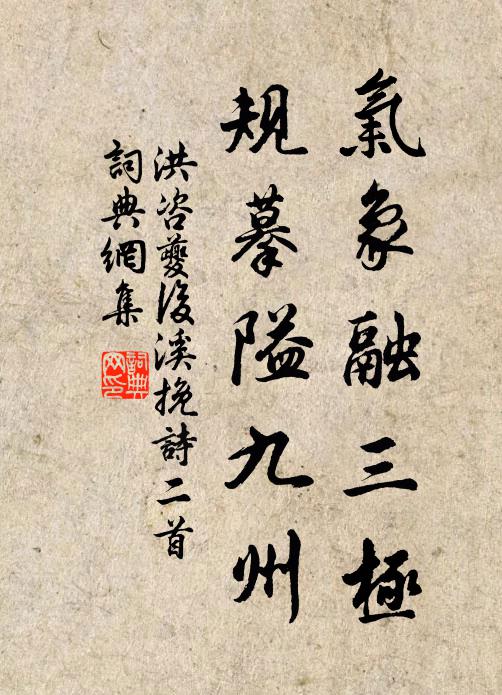 氣象融三極
規摹隘九州
洪咨夔後溪挽詩二首
詞典網集
詞典網印